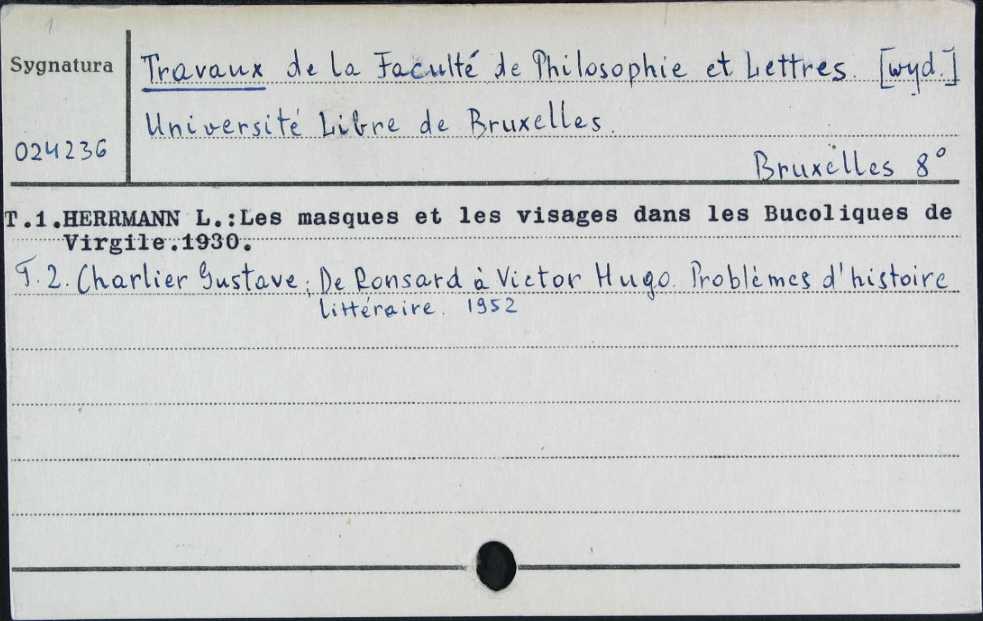 1
Sygnatura
Travaux de la Faculté de Philosophie et Lettres. [wyd.]
Université Libre de Bruxelles.
024236
Bruxelles 8°
T.1.HERRMANN L.:Les masques et les visages dans les Bucoliques de
Virgile.1930.
T.2. Charlier Gustave; De Ronsard à Victor Hugo. Problèmes d'histoire
littéraire. 1952